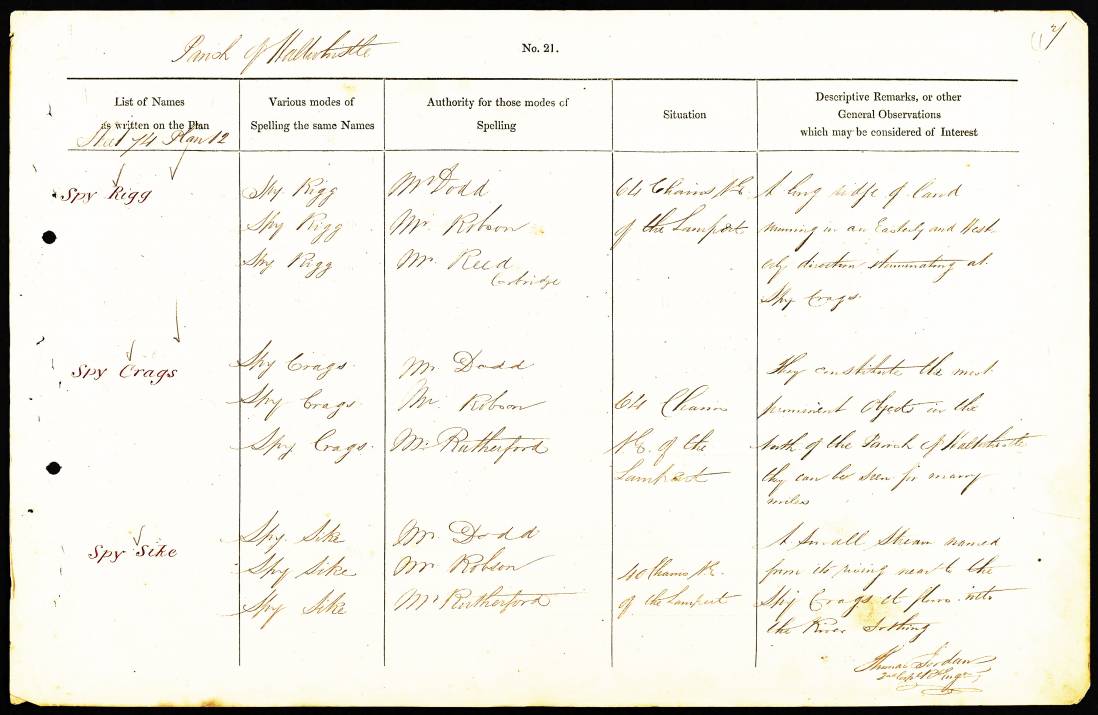 Parish of Haltwhistle
No. 21.
List of Names
as written on the Plan
Various modes of
Spelling the same Names
Authority for those modes of
Spelling
Situation
Descriptive Remarks, or other
General Observations
which may be considered of Interest
Sheet 74 Plan 12
Spy Rigg
Spy Rigg
Spy Rigg
Spy Rigg
Mr Dodd
Mr. Robson
Mr. Reed
Corbridge
64 Chains N.E.
of the Lampert
A long ridge of land
running in an Easterly and West
erly direction terminating at
Spy Crags.
Spy Crags
Spy Crags.
Spy Crags.
Spy Crags.
Mr Dodd
Mr. Robson
Mr. Rutherford
64 Chains
N.E. of the
Lampert
They constitute the most
prominent Objects in the
north of the Parish of Haltwhistle
they can be seen for many
miles
Spy Sike
Spy Sike
Spy Sike
Spy Sike
Mr. Dodd
Mr Robson
Mr Rutherford
40 Chains N.E.
of the Lampert
A Small Stream named
from its rising near to the
Spy Crags it flows into
the River Irthing
Thomas Jordan
2nd Corpl R Engrs